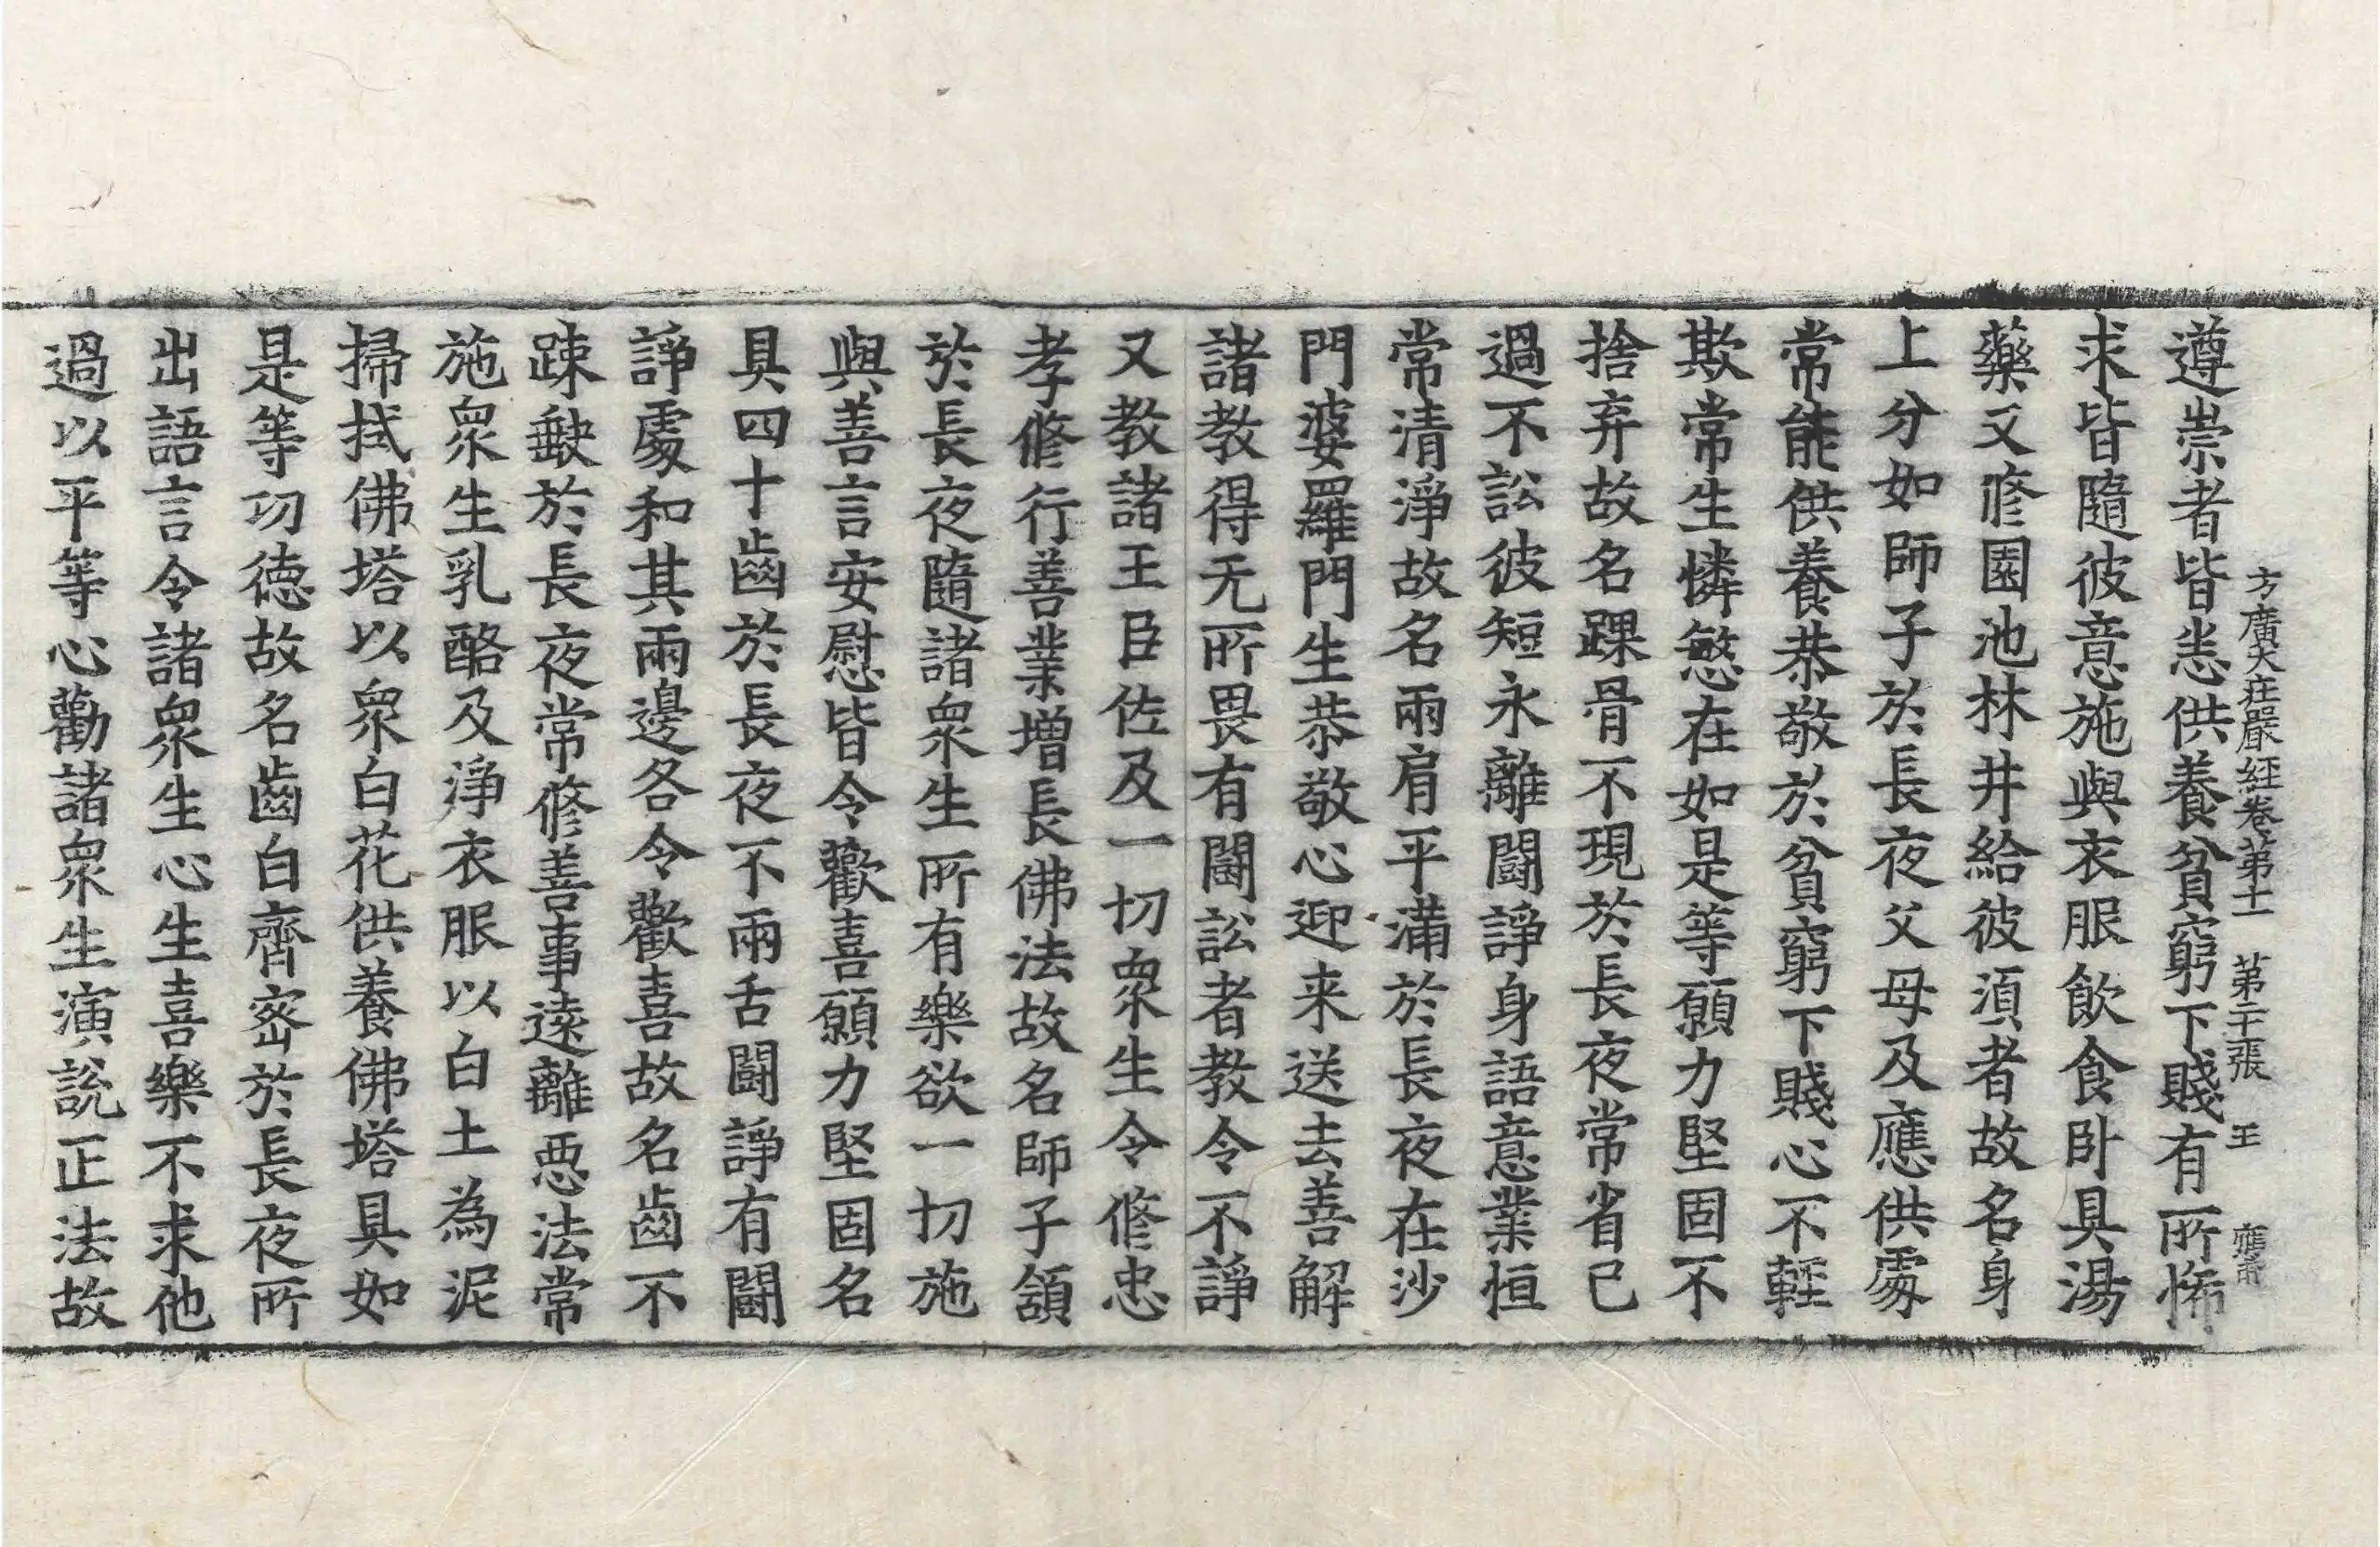 方廣大莊嚴經卷第十一 第二十二張 王
遵崇者皆恙供養貧窮下賤有所悕
求皆隨彼意施與衣服飮食卧具湯
藥又修園池林井給彼湏者故名身
上分如師子於長夜父母及應供處
常能供養恭敬於貧窮下賤心不輕
欺常生憐愍在如是等願力堅固不
捨弃故名踝骨不現於長夜常省己
過不訟彼短永離鬪諍身語意業恒
常清淨故名兩肩平滿於長夜在沙
門婆羅門生恭敬心迎来送去善解
諸教得无所畏有鬪訟者教令不諍
又教諸王臣佐及一切衆生令修忠
孝修行善業增長佛法故名師子頷
於長夜隨諸衆生所有樂欲一切施
與善言安慰皆令歡喜願力堅固名
具四十齒於長夜不兩舌鬪諍有鬪
諍處和其兩邊各令歡喜故名齒不
踈缺於長夜常修善事遠離惡法常
施衆生乳酪及淨衣服以白土為泥
掃拭佛塔以衆白花供養佛塔具如
是等功德故名齒白齊密於長夜所
出語言令諸衆生心生喜樂不求他
過以平等心勸諸衆生演說正法故